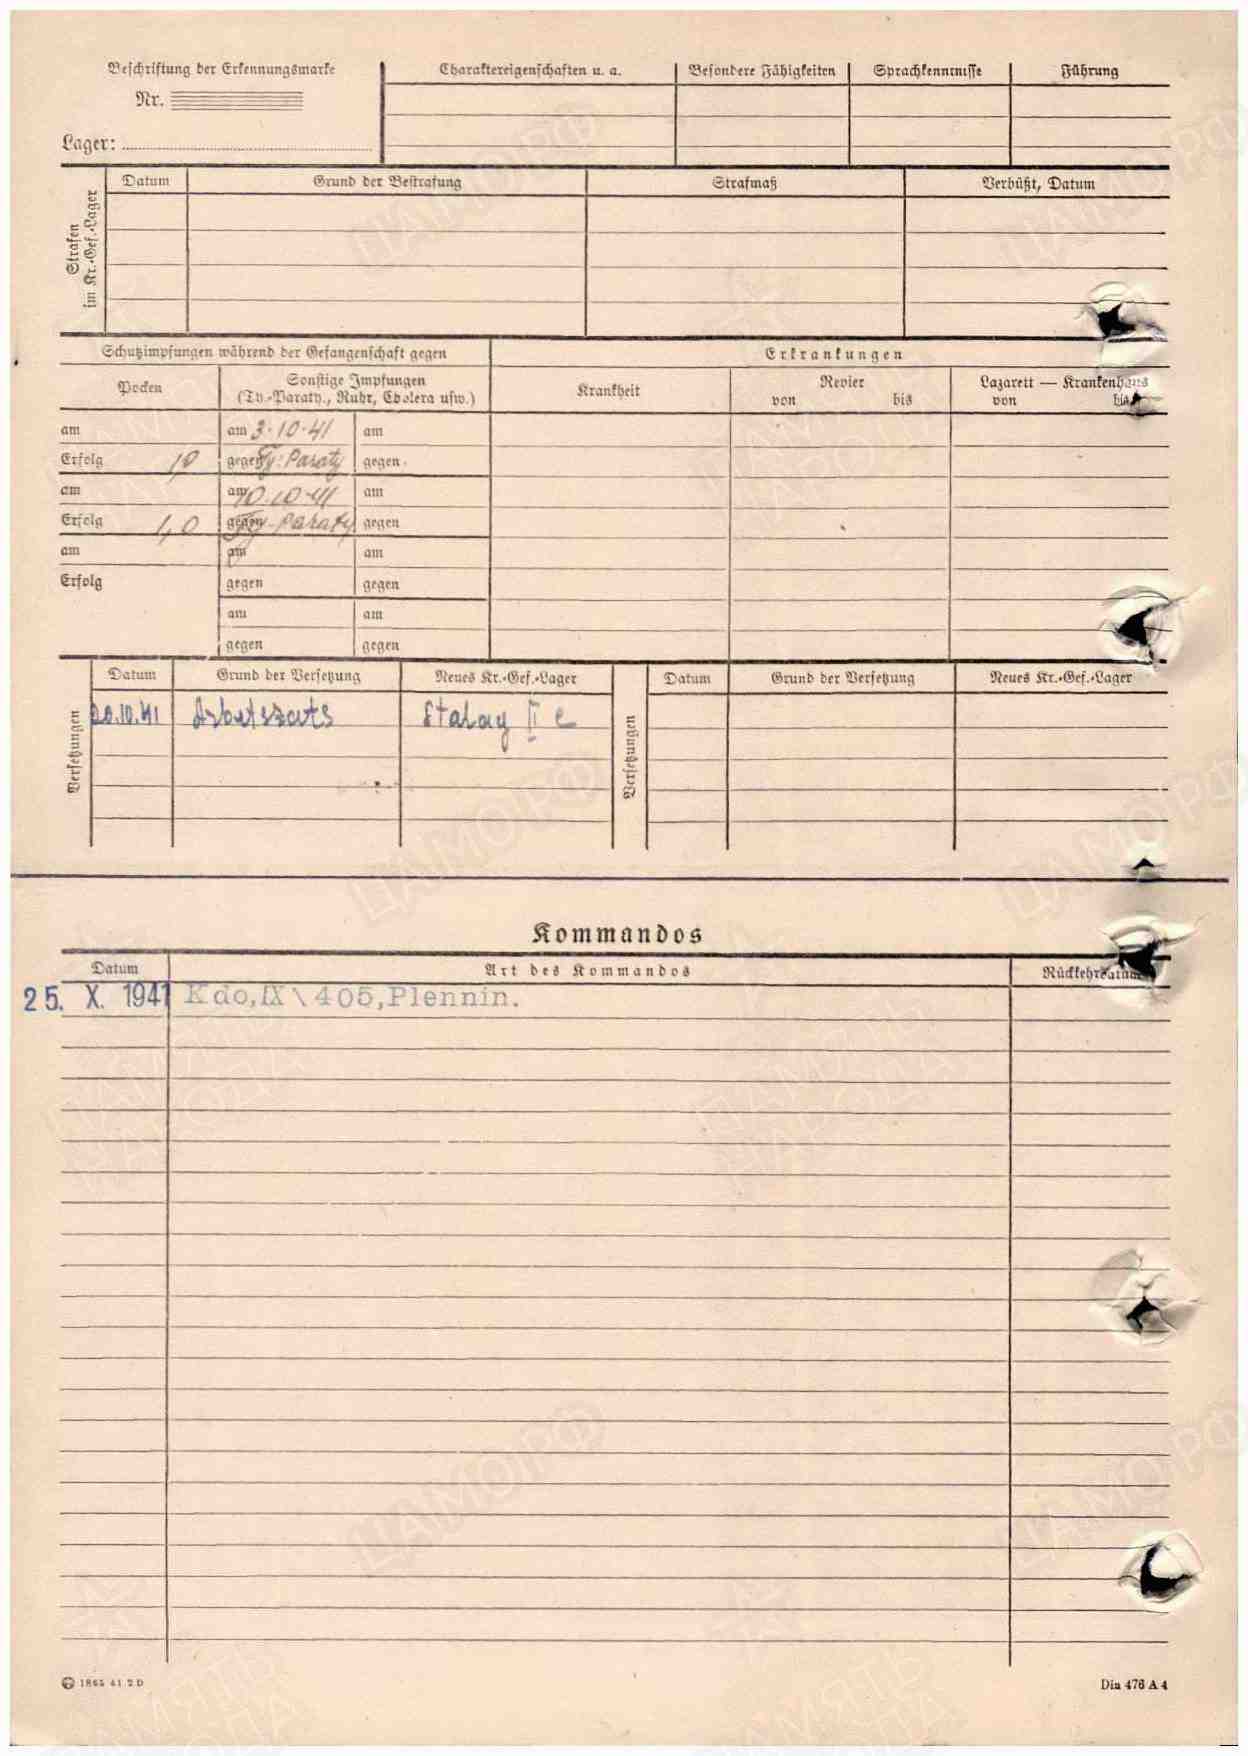 Beschriftung der Erkennungsmarke
Nr.
Lager:
Charaktereigenschaften u. a.
Besondere Fähigkeiten
Sprachkenntnisse
Führung
Strafen
im Kr.-Gef.-Lager
Datum
Grund der Bestrafung
Strafmaß
Verbüßt, Datum
Schutzimpfungen während der Gefangenschaft gegen
Erkrankungen
Pocken
Sonstige Impfungen
(Ty.-Paraty., Ruhr, Cholera usw.)
Krankheit
Revier
von bis
Lazarett — Krankenhaus
von bis
am
am 3.10.41
am
Erfolg
gegen Ty: Paraty
gegen
am
am 10.10.41
am
Erfolg 1,0
gegen Ty-Paraty
gegen
am
am
am
Erfolg
gegen
gegen
am
am
gegen
gegen
Versetzungen
Datum
Grund der Versetzung
Neues Kr.-Gef.-Lager
20.10.41
Stalag II c
Versetzungen
Datum
Grund der Versetzung
Neues Kr.-Gef.-Lager
Kommandos
Datum
Art des Kommandos
Rückkehrdatum
25. X. 1941 Kdo,IX\405,Plennin.
1865 41 2 D
Din 476 A 4
ПАМЯТЬ
НАРОДА
ЦАМО.РФ